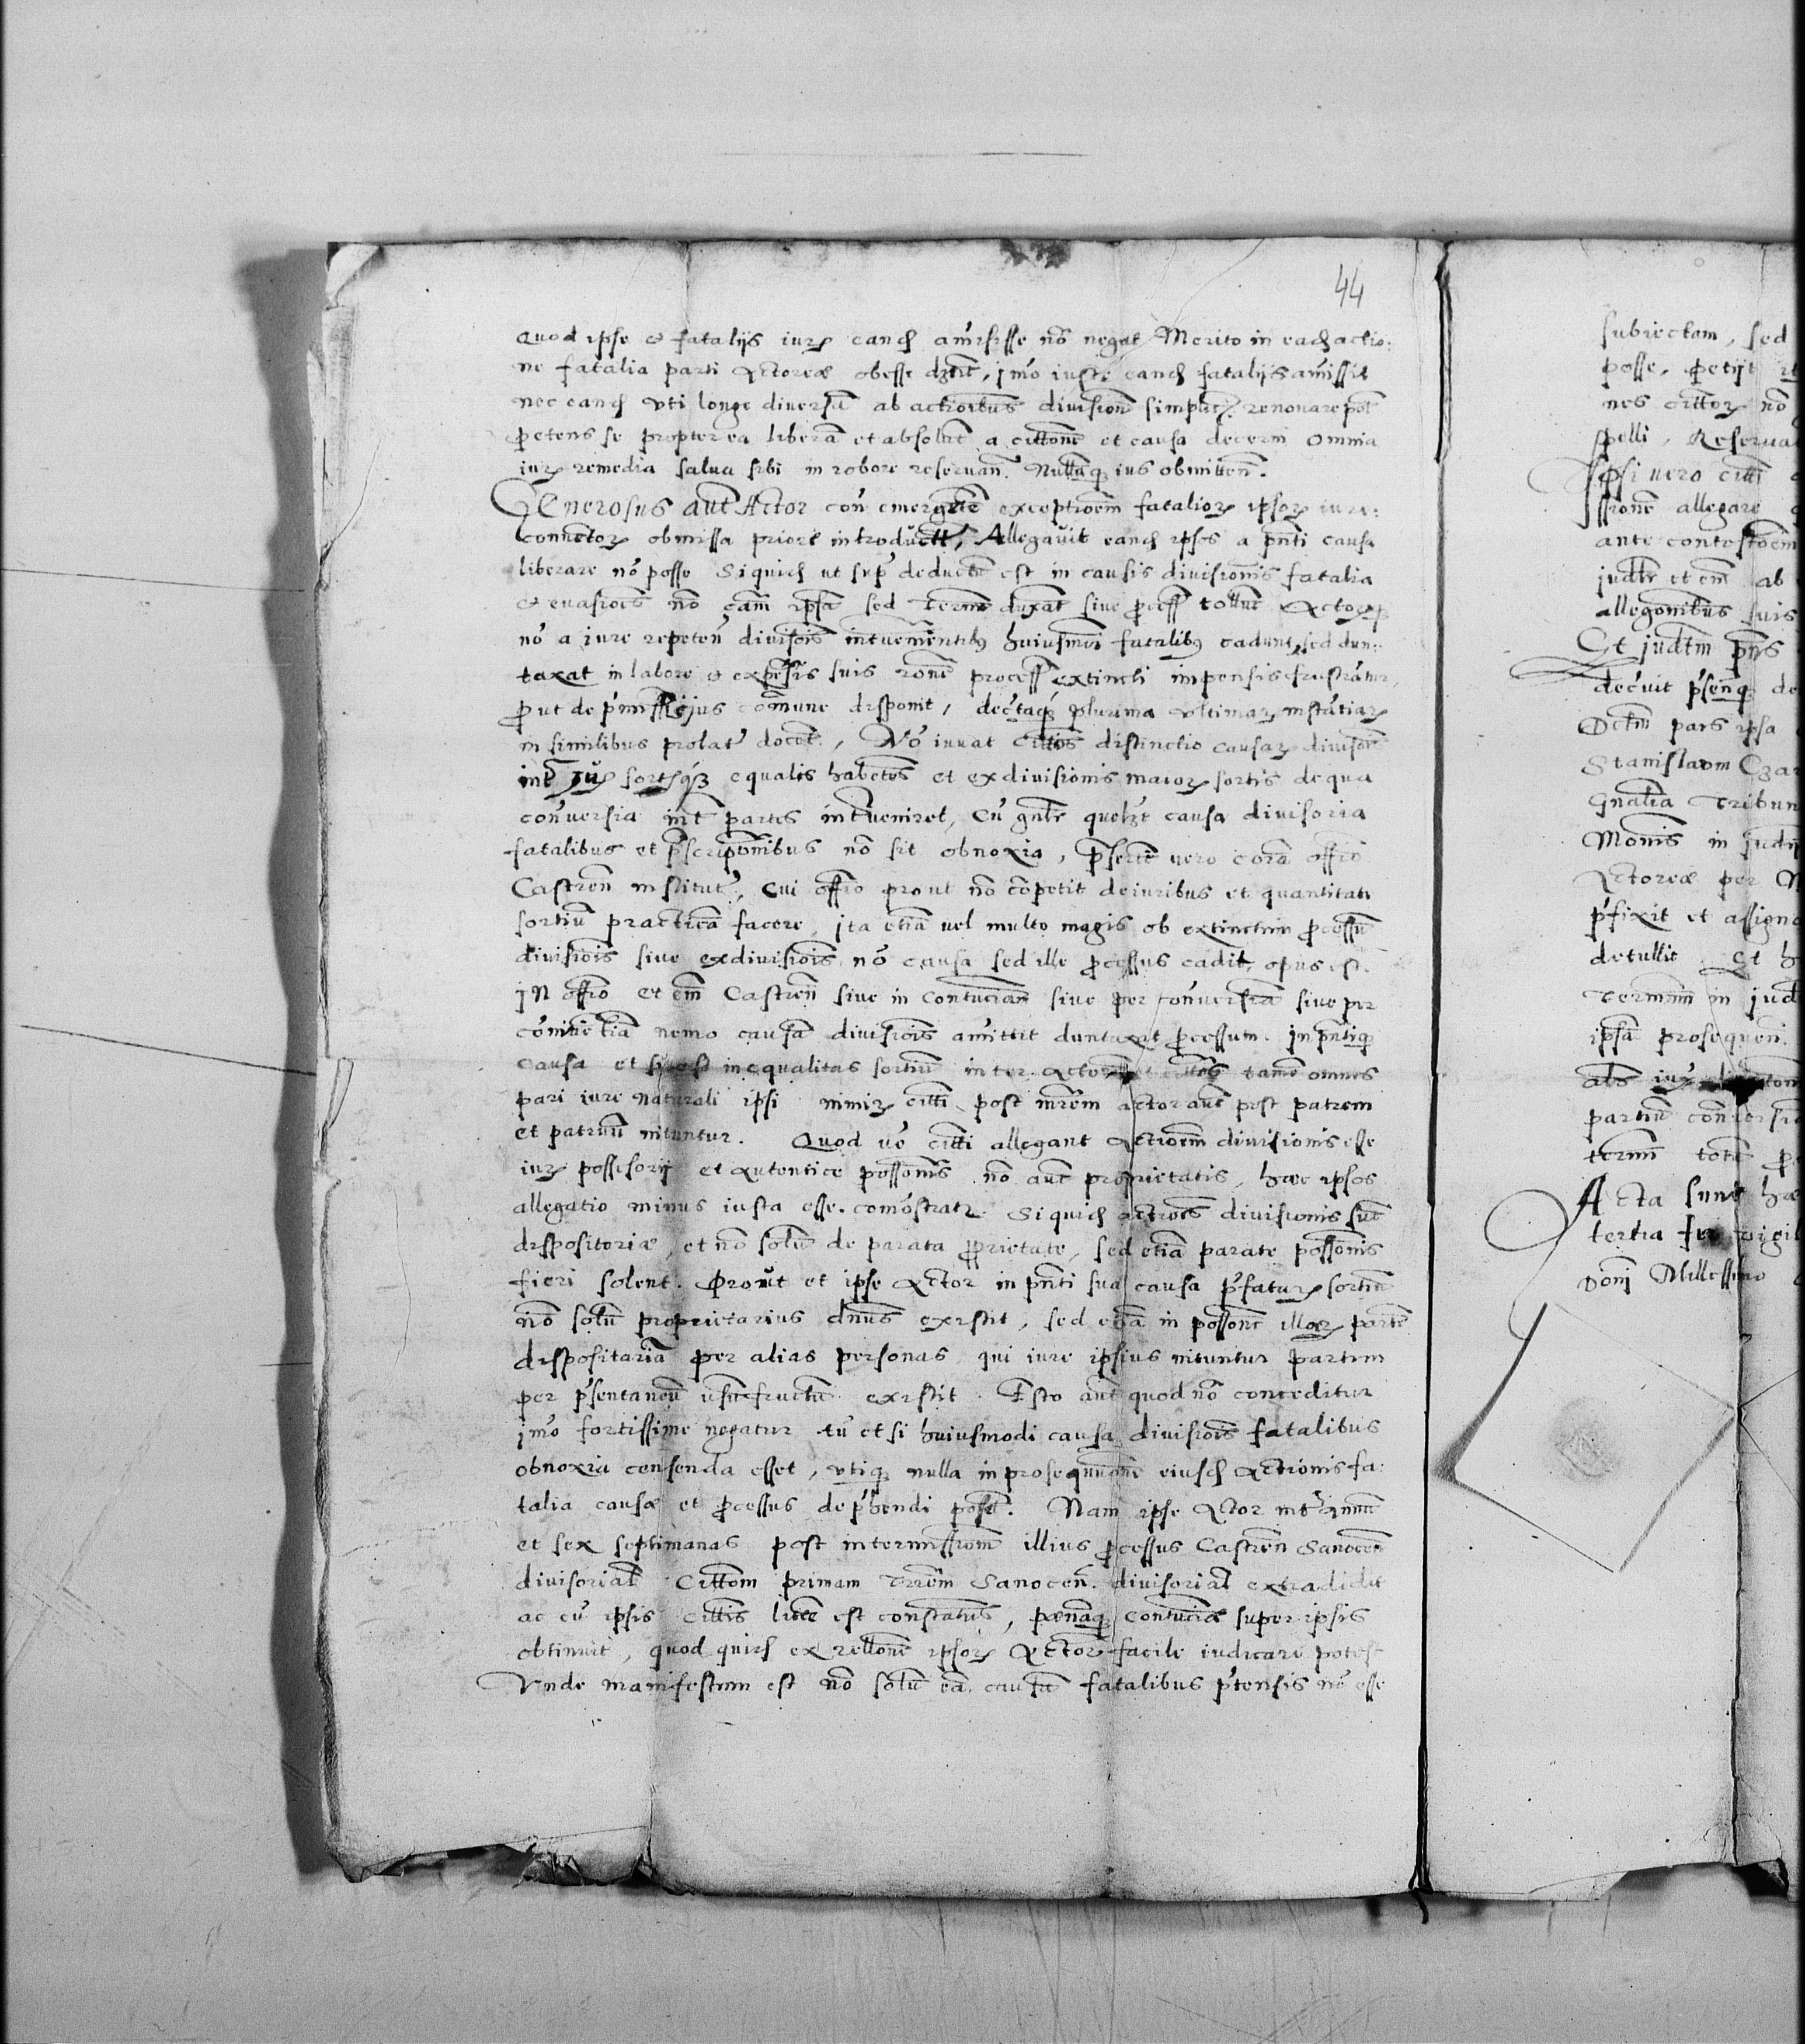 44
Quod ipse et fatalijs iurꝫ eandꝫ amisisse nō negat Merito in eadꝫ actio:
ne fatalia parti Actoreæ obesse dꝫnt, jmō iuste eandꝫ fatalijs amissit
nec eandꝫ vti longe diversā ab actioībus divisionū simplicꝫ renovare pōt
petens se propterea liberā et absolut a cittōne et causa decerni omnia
iurꝫ remedia salva sibi in robore reservan̄. Nullūqꝫ ius obmitten̄.
GEnerosus aūt Actor con̄ emergētē exceptioēm fataliorꝫ ipsorꝫ iure:
conventorꝫ obmissa priorē introductā, Allegavit eandꝫ ipsos a pn̄ti causa
liberare nō posse Siquidꝫ ut sup̄ deductū est in causis divisionis fatalia
et evasioēs nō cām ipsā sed termī duxat sive p̄cess̄ tollūt Actorꝫqꝫ
nō a iure repeten̄ divisiōis intvenientibꝫ huiusmōi fatalibꝫ cadunt, sed dun:
taxat in labore et expēsis suis rōne process̄ extincti impensis frustrātur,
p̄ut de p̄miss̄ ijus cōmune disponit, decr̄taqꝫ plurima vltimarꝫ instātiarꝫ
in similibus prolat̄ docēt, Nō iuvat Cittōs distinctio causarꝫ divisorꝫ
int̄ jurꝫ sortisqꝫ equalis habētes et ex divisionis maiorꝫ sortis de qua
con̄versia int̄ partes int̄veniret, Cū gn̄lr̄ quelꝫt causa divisoria
fatalibus et p̄scriptionibus nō sit obnoxia, p̄sertī vero corā offīo
Castren̄ institut̄, cui offīo prout nō cōpetit de iuribus et quantitate
sortiū practicā facere, jta etiā vel multo magis ob extinctum p̄cessū
divisiōis sive exdivisiōis nō causa sed ille p̄cessus cadit, opus est.
jN offīo et em̄ Castren̄ sive in contuciam sive per con̄versiā sive per
cōniventiā nemo causā divisiōis amittit duntaxat p̄cessum. jn pn̄tiqꝫ
causa et si est inequalitas sortiū inter Actorem et cittōs tamē omnes
pari iure naturali ipsi nimiꝫ citti post mr̄em actor aūt post patrem
et patruū nituntur. Quod vō citti allegant Actioēm divisionis esse
iurꝫ possesorij et Autentice possōnis nō aūt proprietatis, hæc ipsos
allegatio minus iusta esse comōstratꝫ Siquidꝫ actioēs divisionis sūt
dispositoriæ, et nō solū de parata p̄prietate, sed etiā parate possōnis
fieri solent. Prout et ipse Actor in pn̄ti sua causa p̄fatarꝫ sortiū
nō solū proprietarius dn̄us existit, sed etiā in possōne illarꝫ partī
dispositariā per alias personas qui iure ipsius nituntur partim
per p̄sentaneū usūfructū existit. Esto aūt quod nō conceditur
jmō fortissime negatur tū et si huiusmodi causa divisiōis fatalibus
obnoxia censenda esset, vtiqꝫ nulla in prosequutiōne eiusdꝫ Actionis fa:
talia causæ et p̄cessus dep̄hendi possēt. Nam ipse Actor int̄ annū
et sex septimanas post intermissionem illius p̄cessus Castren̄ Sanocen̄
divisorial̄ Cittōm primam Trr̄em Sanocen̄. divisorial̄ extradidit
ac cū ipsis cittis litē est constātus, pænāqꝫ contuciæ super ipsis
obtinuit, quod quidꝫ ex rellōne ipsorꝫ Actorꝫ facile iudicari potest
Vnde manifestum est nō solū eā causā fatalibus p̄tensis nō esse
subiectam, sed
posse, petijt
nes cittorꝫ nō
pelli, Reserva
Ipsi vero citti
ssionē allegare
ante contestōem
judtꝫ et em̄ ab
allegōnibus suis
Et judtm p̄ns
decr̄vit p̄senqꝫ de
Dctm pars ipsa
Stanislaom Czar
Gn̄alia Tribun
Monis in judic
Actoreæ per
p̄fixit et assigna
detulit Et h
Termin̄ in jud
ipsā prosequen.
partiū con̄versia
termin̄ totū
Acta sunt hæ
tertia vigil
Domj Millessimo